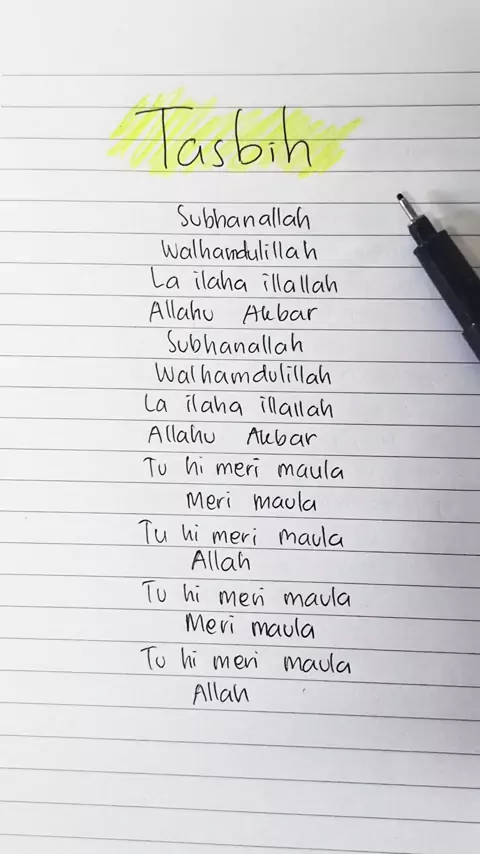 Tasbih
Subhanallah
Walhamdulillah
La ilaha illallah
Allahu Akbar
Subhanallah
Walhamdulillah
La ilaha illallah
Allahu Akbar
Tu hi meri maula
Meri maula
Tu hi meri maula
Allah
Tu hi meri maula
Meri maula
Tu hi meri maula
Allah